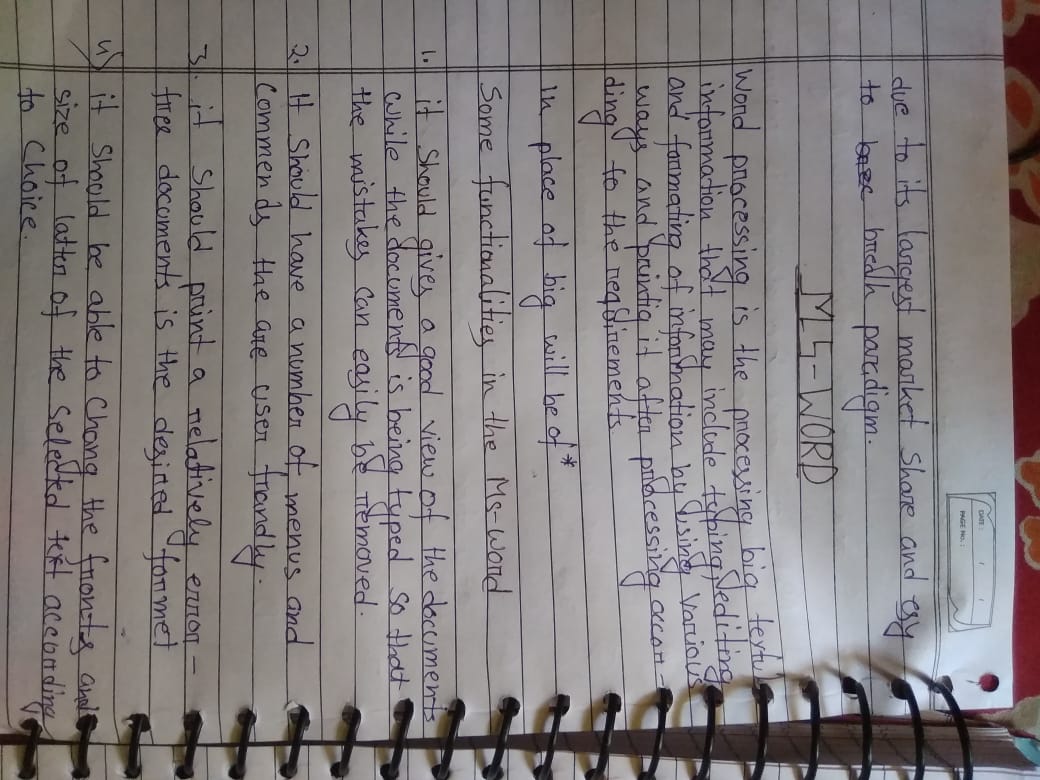 DATE: / /
PAGE NO.:
due to its largest market share and esy
to bredh paradigm.
MS-WORD
Word processing is the processing big textul
information that may include typing, editing
and formating of information by using various
ways and printig it after processing accor-
ding to the reqdirements
in place of big will be of*
Some functionalities in the Ms-word
1. it should gives a good view of the documents
while the documents is being typed so that
the mistakes can easily be removed.
2. It should have a number of menus and
commends the are user friandly.
3. it should print a relatively error-
free documents is the desired formet
4) it should be able to chang the fronts and
size of latter of the selected text according
to choice.